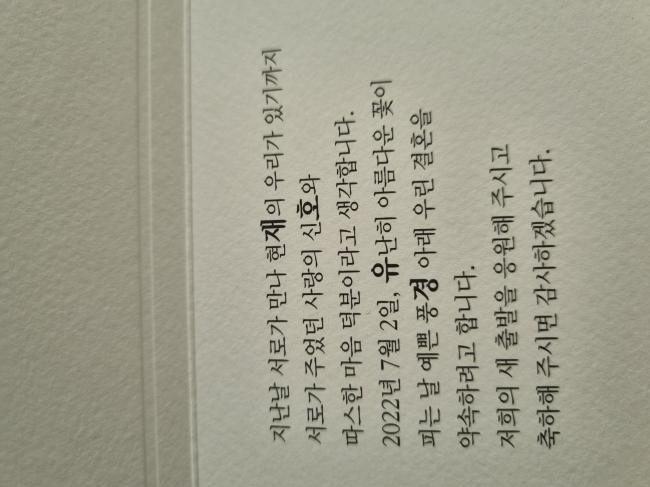 지난날 서로가 만나 현재의 우리가 있기까지
서로가 주었던 사랑의 신호와
따스한 마음 덕분이라고 생각합니다.
2022년 7월 2일, 유난히 아름다운 꽃이
피는 날 예쁜 풍경 아래 우린 결혼을
약속하려고 합니다.
저희의 새 출발을 응원해 주시고
축하해 주시면 감사하겠습니다.